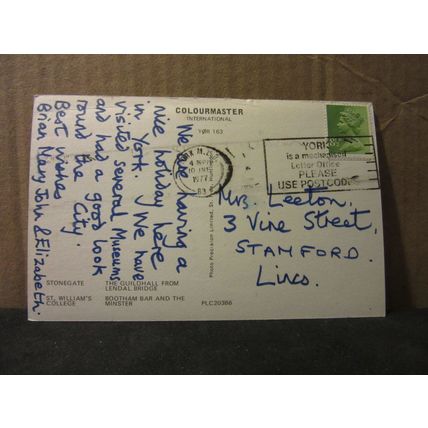 COLOURMASTER
INTERNATIONAL
YOR 163
We are having a
nice holiday here
in York. We have
visited several Museums
and had a good look
round the City.
Best wishes
Brian Mary John & Elizabeth.
YORK
is a mechanised
Letter Office
PLEASE
USE POSTCODE
1977
Mrs. Leeton,
3 Vine Street,
STAMFORD.
Lincs.
Photo Precision Limited, St.
STONEGATE THE GUILDHALL FROM
LENDAL BRIDGE
ST. WILLIAM'S BOOTHAM BAR AND THE
COLLEGE MINSTER
PLC20366